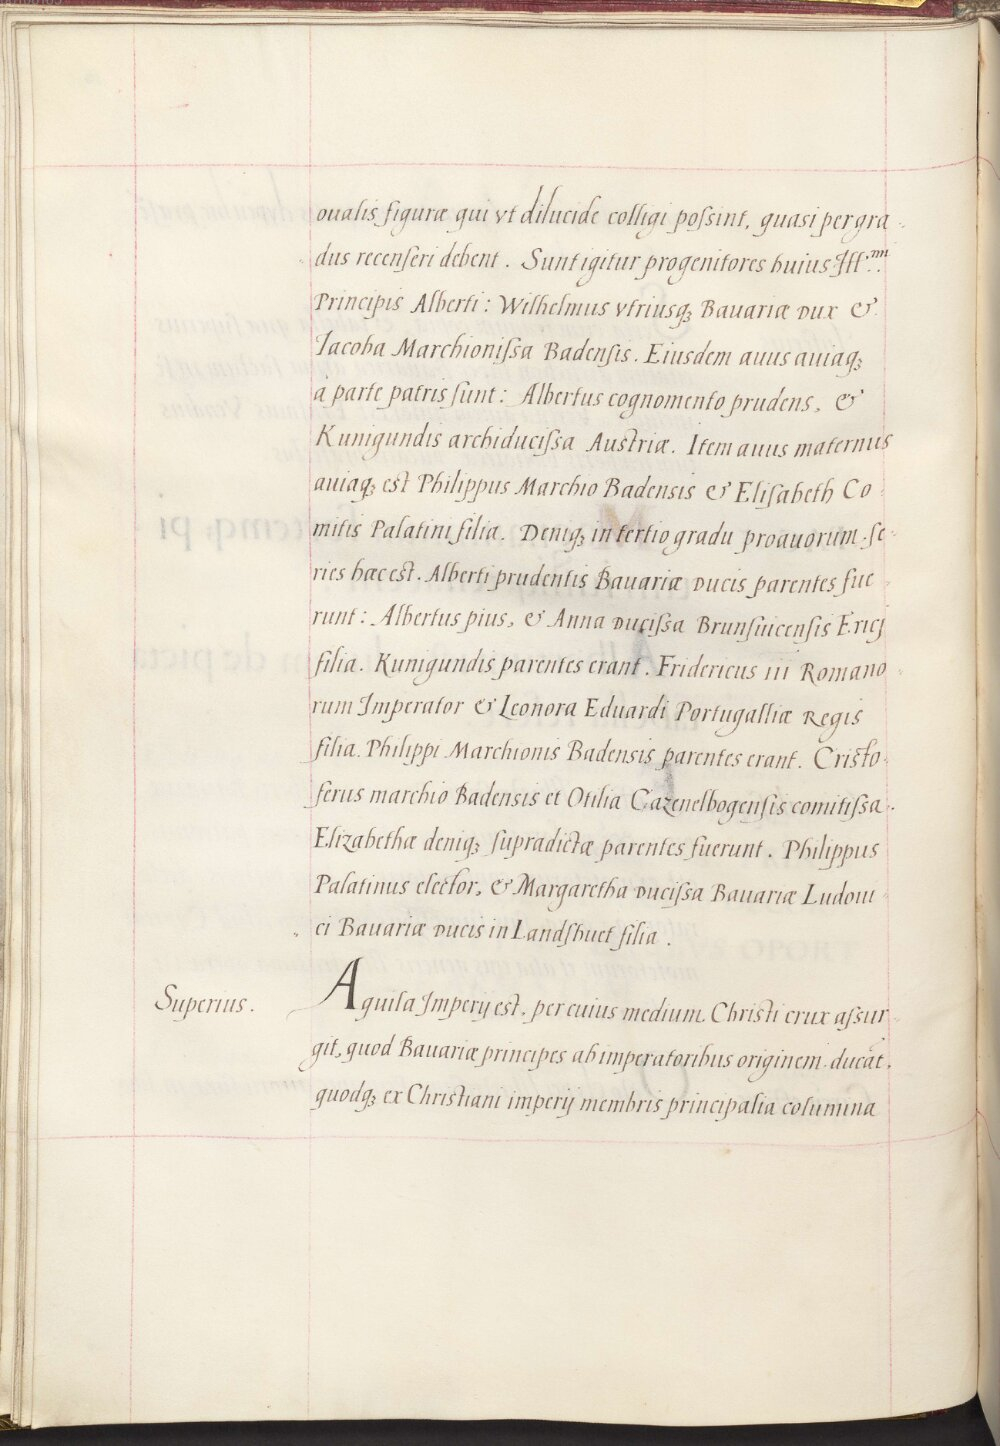 oualis figuræ qui vt dilucide colligi poſsint, quasi per gra
dus recenſeri debent. Sunt igitur progenitores huius Ill.mi
Principis Alberti: Wilhelmus vtriusq; Bauariæ Dux &
Iacoba Marchioniſsa Badenſis. Eiusdem auus auiaq;
à parte patris ſunt: Albertus cognomento prudens, &
Kunigundis archiduciſsa Austriæ. Item auus maternus
auiaq; est Philippus Marchio Badensis & Eliſabeth Co
mitis Palatini filia. Deniq; in tertio gradu proauorum ſe
ries hæc est. Alberti prudentis Bauariæ Ducis parentes fue
runt: Albertus pius, & Anna Duciſsa Brunſuicenſis Ericj
filia. Kunigundis parentes erant. Fridericus III Romano
rum Imperator & Leonora Eduardi Portugalliæ Regis
filia. Philippi Marchionis Badensis parentes erant. Cristo
ferus marchio Badensis et Otilia Cazenelbogenſis comitiſsa.
Elizabethæ deniq; ſupradictæ parentes fuerunt. Philippus
Palatinus elector, & Margaretha Duciſsa Bauariæ Ludoui
ci Bauariæ Ducis in Landſhuet filia.
Superius.
Aquila Imperij est, per cuius medium Christi crux aſsur
git, quod Bauariæ principes ab imperatoribus originem ducāt,
quodq; ex Christiani imperij membris principalia columina